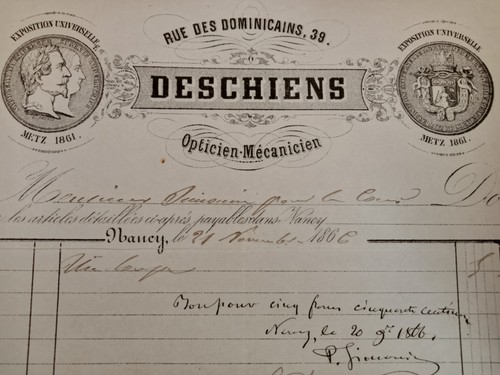 RUE DES DOMINICAINS, 39.
EXPOSITION UNIVERSELLE
METZ 1861.
DESCHIENS
EXPOSITION UNIVERSELLE
METZ 1861.
Opticien-Mécanicien
Monsieur pour la D
les articles détaillés ci-après, payables dans Nancy
Nancy, le 21 Novembre 1866
Une loupe 5
Bon pour cinq francs cinquante centimes
Nancy, le 20 9re 1866.